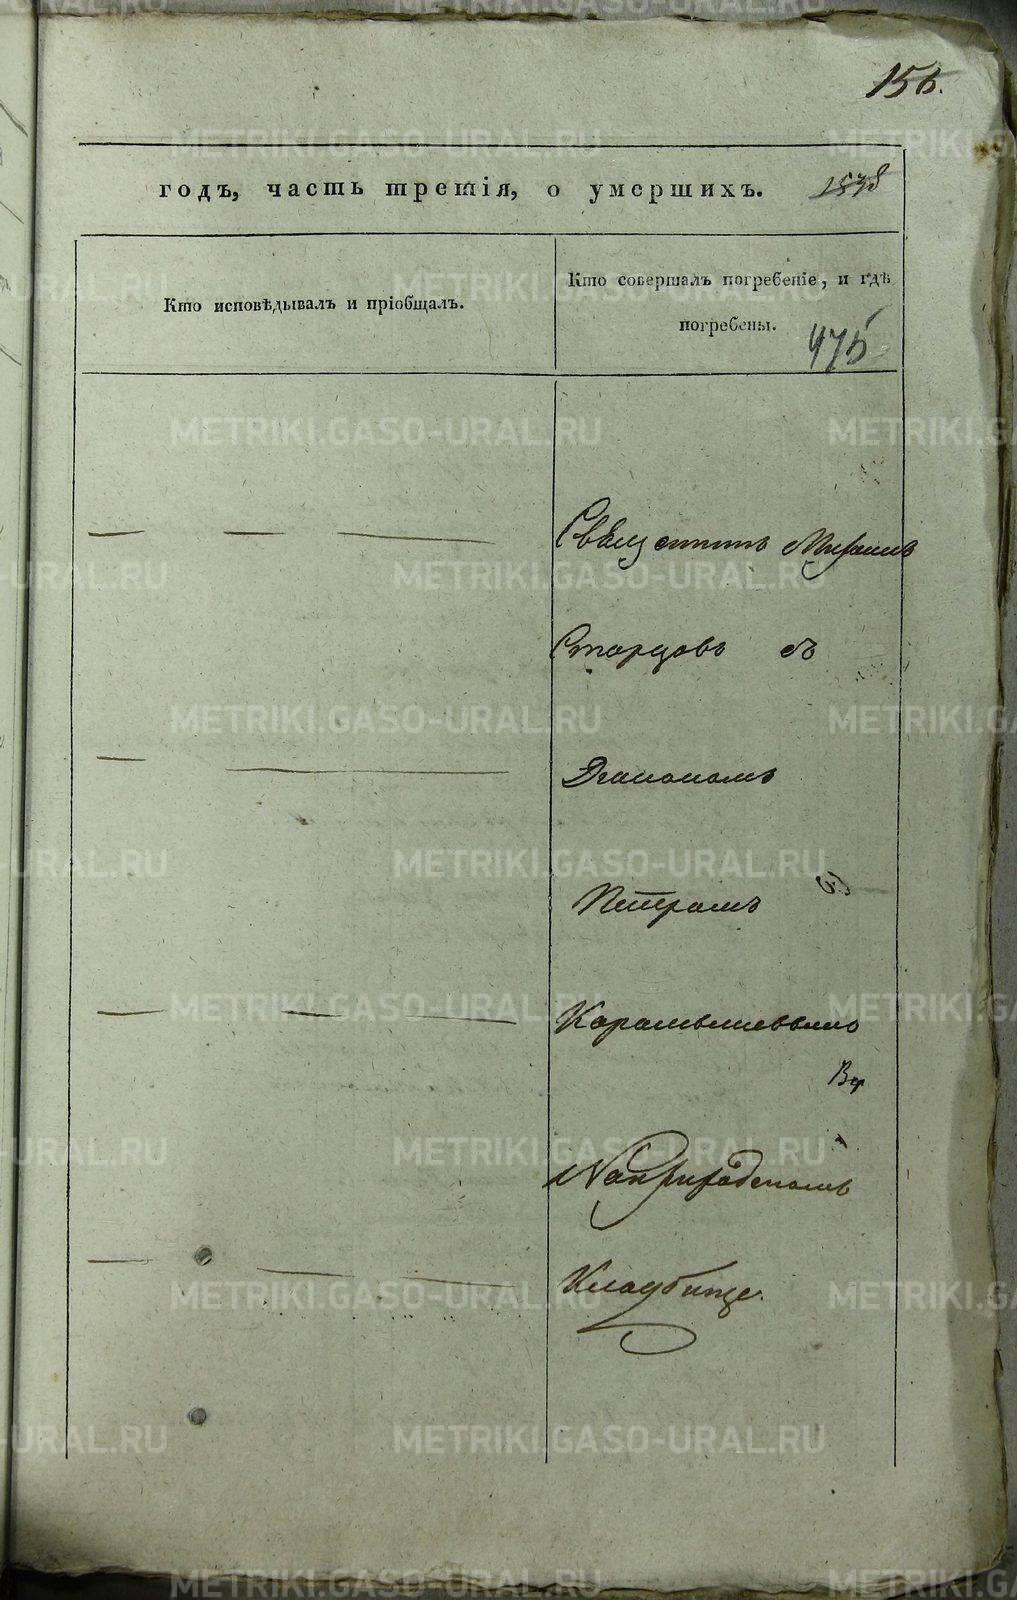 156.
годъ, часть третія, о умершихъ.
Кто исповѣдывалъ и пріобщалъ.
Кто совершалъ погребеніе, и гдѣ
погребены.
475
Священникъ Михаилъ
Старцовъ съ
Діакономъ
Петромъ
Карамышевымъ
На приходскомъ
Кладбище.
METRIKI.GASO-URAL.RU